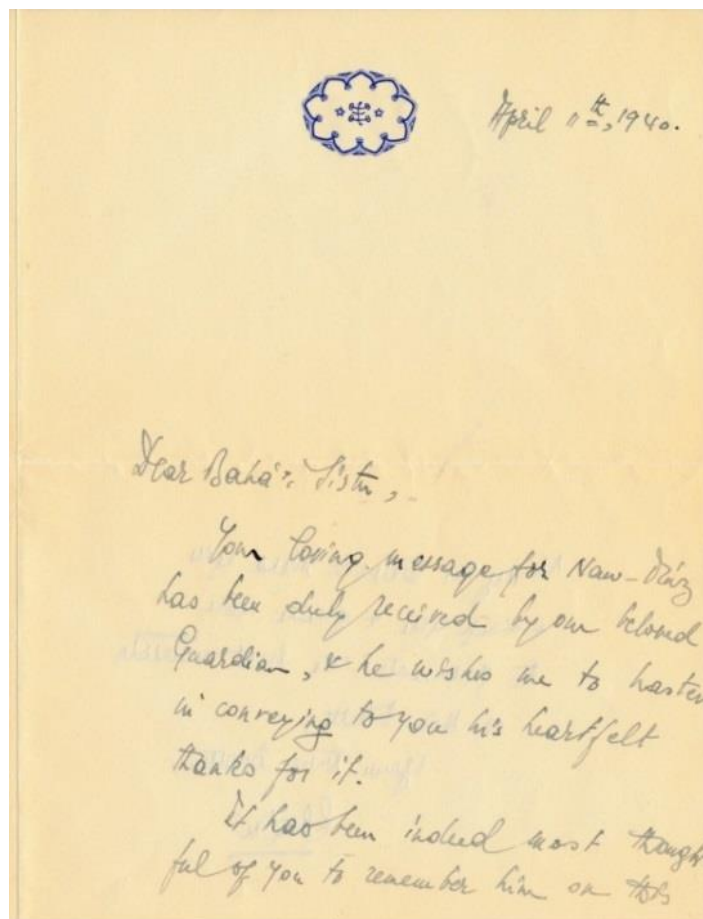 April 11th, 1940.
Dear Bahá'í Sister,
Your loving message for Naw-Rúz
has been duly received by our beloved
Guardian, & he wishes me to hasten
in conveying to you his heartfelt
thanks for it.
It has been indeed most though
ful of you to remember him on this